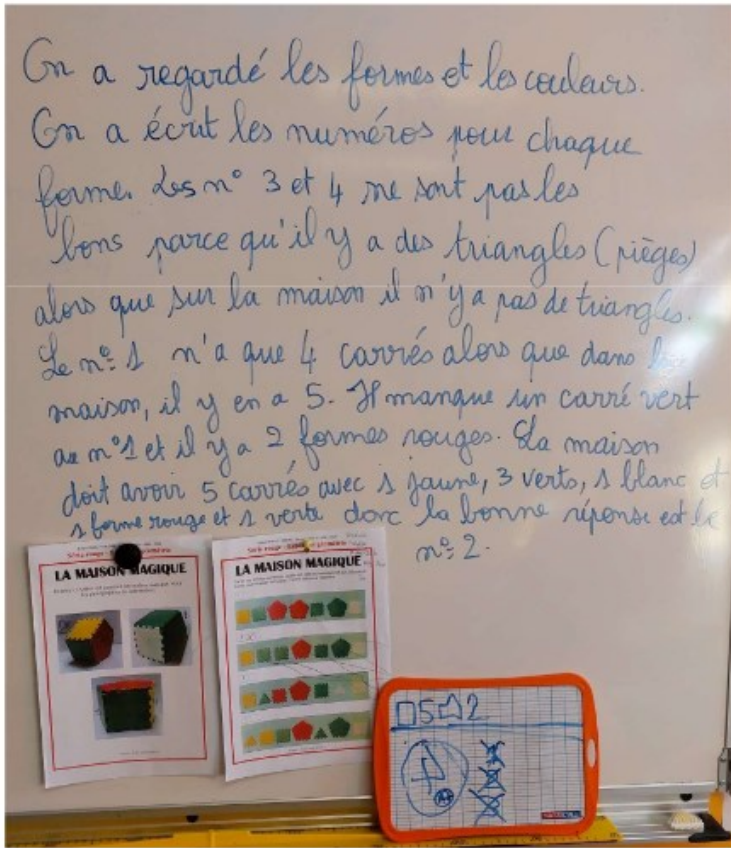 On a regardé les formes et les couleurs.
On a écrit les numéros pour chaque
forme. Les n° 3 et 4 ne sont pas les
bons parce qu'il y a des triangles (pièges)
alors que sur la maison il n'y a pas de triangles.
Le n° 1 n'a que 4 carrés alors que dans la
maison, il y en a 5. Il manque un carré vert
au n° 1 et il y a 2 formes rouges. La maison
doit avoir 5 carrés avec 1 jaune, 3 verts, 1 blanc et
1 forme rouge et 1 verte donc la bonne réponse est le
n° 2.
LA MAISON MAGIQUE
LA MAISON MAGIQUE
5 2